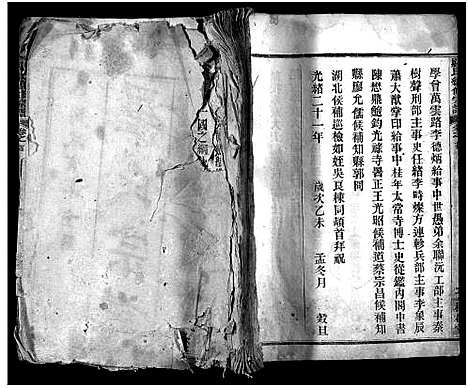 學曾萬雲路李德炳給事中世愚弟余聯沅工部主事秦
樹聲刑部主事史任緒李時燦方連軫兵部主事李象辰
蕭大猷掌印給事中桂年太常寺博士史從鑑內閣中書
陳懋鼎鮑鈞光祿寺署正王光昭候補道蔡宗昌候補知
縣廖允儒候補知縣郭同
湖北候補巡檢如姪吳良棟同頓首拜祝
光緒二十一年 歲次乙未 孟冬月 穀旦